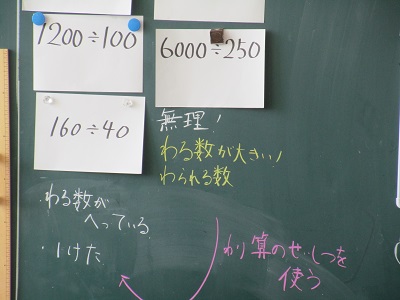 1200÷100
6000÷250
160÷40
無理!
わる数が大きい!
わられる数
・わる数が
へっている。
・1けた
わり算のせいしつを
使う